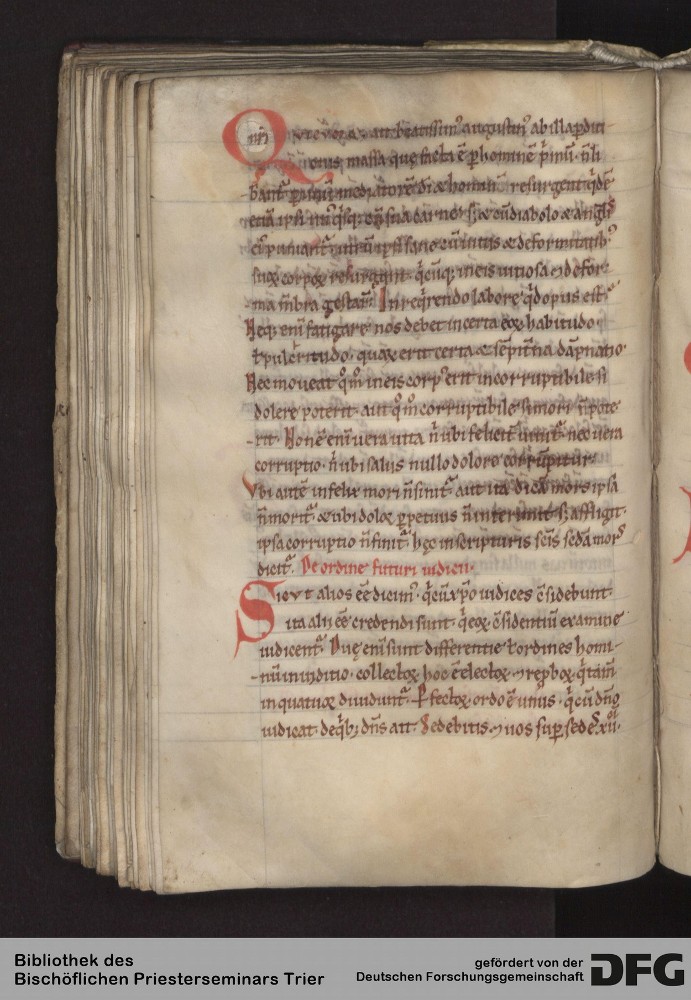 aut beatissim⁹ augustin⁹ ab illa pditi
massa que facta ē p hominē p̄mū. n̄ li
bant᷑ mediatorē di & hominū resurgent qdē
& cū diabolo & angl̓is
sane cū uitiis & deformitatib⁹
suoꝝ corpoꝝ resurgunt. q̄cūq; in eis uitiosa ⁊ defor
ma m̄bra gestaꝝ. In req̄rendo labore qd opus est.
Neq; eni᷑ fatigare nos debet incerta eoꝝ habitudo.
ł pulcritudo. quoꝝ erit certa & sēpit̄na dāpnatio.
Nec moueat qm̄ in eis corp⁹ erit incorruptibile si
dolere poterit. aut qm̄ corruptibile si mori n̄ pote
rit. Non ē eni᷑ uera uita n̄ ubi felicit᷑ uiuit᷑. nec uera
corruptio. n̄ ubi salus nullo dolore corrūpitur.
Vbi autē infelix mori n̄ sinit᷑. aut ita dicā mors ipsa
n̄ morit᷑. & ubi doloꝛ ppetuus n̄ interimit sꝫ affligit.
ipsa corruptio n̄ finit᷑. hec in scripturis scīs sēda mors
dicit᷑. De ordine futuri iudicii.
Sicut alios eē dicim⁹. q̄ cū xpo iudices ēsidebunt.
ita alii eē credendi sunt. q̄ eoꝝ ēsidentiū examine
iudicent᷑. Due eni᷑ sunt differentie ł ordines homi
nū in iuditio. collectoꝝ hoc ē electoꝝ. ⁊ rep̄boꝝ. q̄ tam̄
in quatuoꝛ diuidunt᷑. Pfectoꝝ ordo ē unus. q̄ cū dn̄o
iudicat. de qb; dn̄s ait. Sedebitis. ⁊ uos sup sedes xii.
Bibliothek des
Bischöflichen Priesterseminars Trier
gefördert von der
Deutschen Forschungsgemeinschaft
DFG